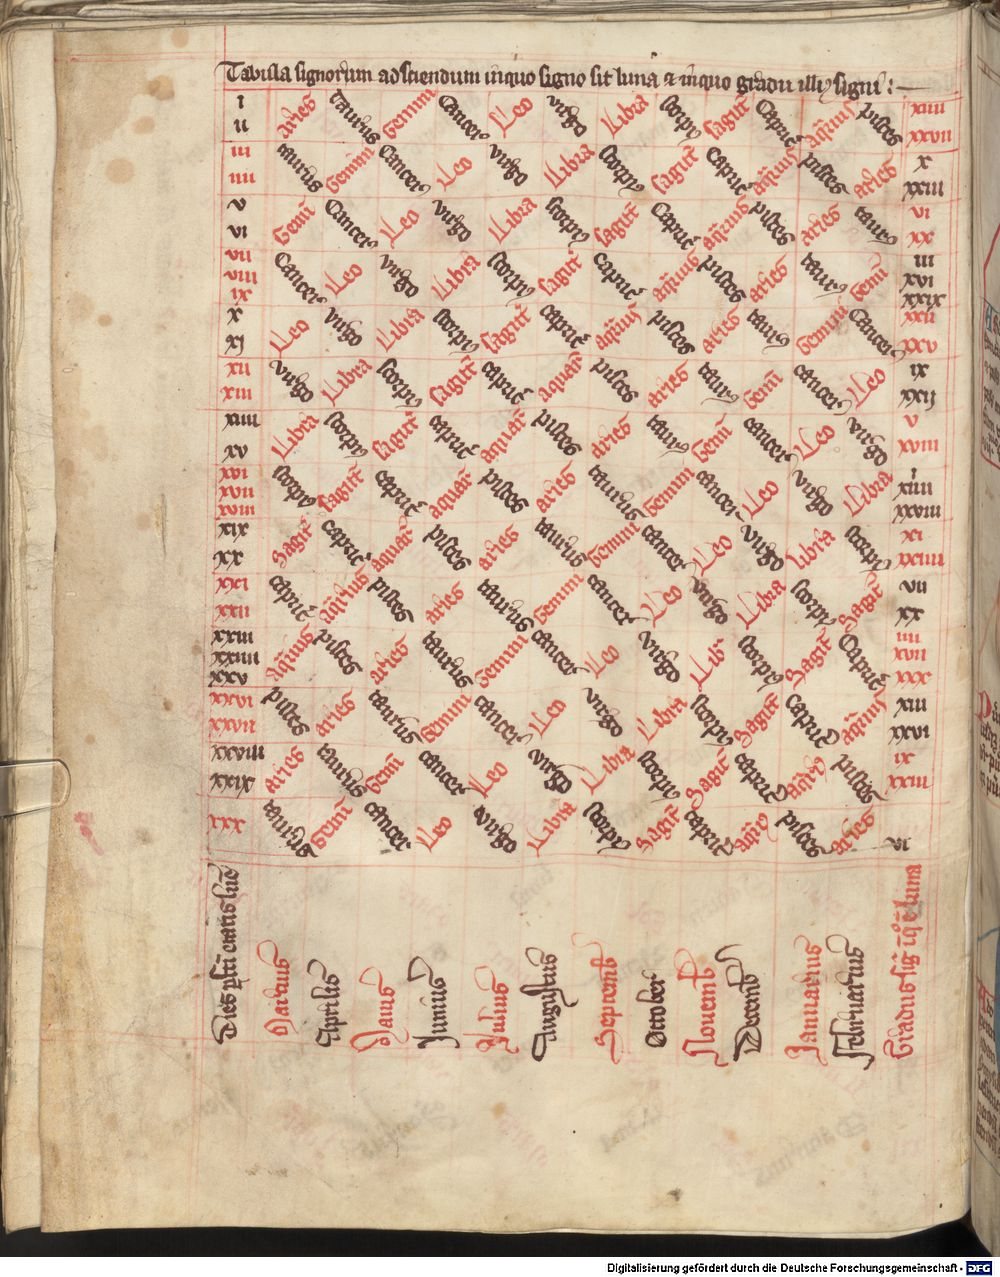 Tabula signorum ad sciendum in quo signo sit luna & in quo gradu illi9 signi :
i ii aries taurus Gemini Cancer Leo virgo Libra scorpi9 sagitt Capric aq̄rius pisces xiiii xxvii
iii iiii taurus Gemini Cancer Leo virgo Libra scorpi9 sagitt capric aq̄rius pisces aries x xxiii
v vi Gemi Cancer Leo virgo Libra scorpi9 sagitt Capric aq̄rius pisces aries taur9 vi xx
vii viii ix Cancer Leo virgo Libra scorpi9 sagitt capric aq̄rius pisces aries taur9 Gemi iii xvi xxix
x xi Leo virgo Libra scorpi9 sagitt capric aq̄rius pisces aries taur9 Gemini Cancer xxii xxv
xii xiii virgo Libra scorpi9 sagitt capric aquar pisces aries taur9 Gemi cancer Leo ix xxij
xiiii xv Libra scorpi9 sagitt capric aquar pisces aries taur9 Gemi cancer Leo virgo v xviii
xvi xvii xviii scorpi9 sagitt capric aquar pisces aries taurus Gemini cancer Leo virgo Libra i xiiii xxviii
xix xx sagit capric aquar pisces aries taurus Gemini cancer Leo virgo libra scorpi9 xi xxiiii
xxi xxii capric aq̄rius pisces aries taurus Gemini cancer Leo virgo Libra scorpi9 sagit vii xx
xxiii xxiiii xxv aq̄rius pisces aries taurus Gemini cancer Leo virgo Lib scorpi9 sagit Capric iiii xvii xxx
xxvi xxvii pisces aries taurus Gemini cancer Leo virgo Libra scorpi9 sagit capric aq̄rius xiii xxvi
xxviii xxix aries taurus Gemi cancer Leo virgo Libra scorpi9 sagit capric aq̄ri9 pisces ix xxiii
xxx taurus Gemi cancer Leo virgo Libra scorpi9 sagit capric aq̄ri9 pisces aries vi
Dies etatis lune
Marcius
Aprilis
Maius
Junius
Julius
Augustus
Septemb
October
Novemb
Decemb
Januarius
Februarius
Gradus sig i q ē luna
Digitalisierung gefördert durch die Deutsche Forschungsgemeinschaft - DFG